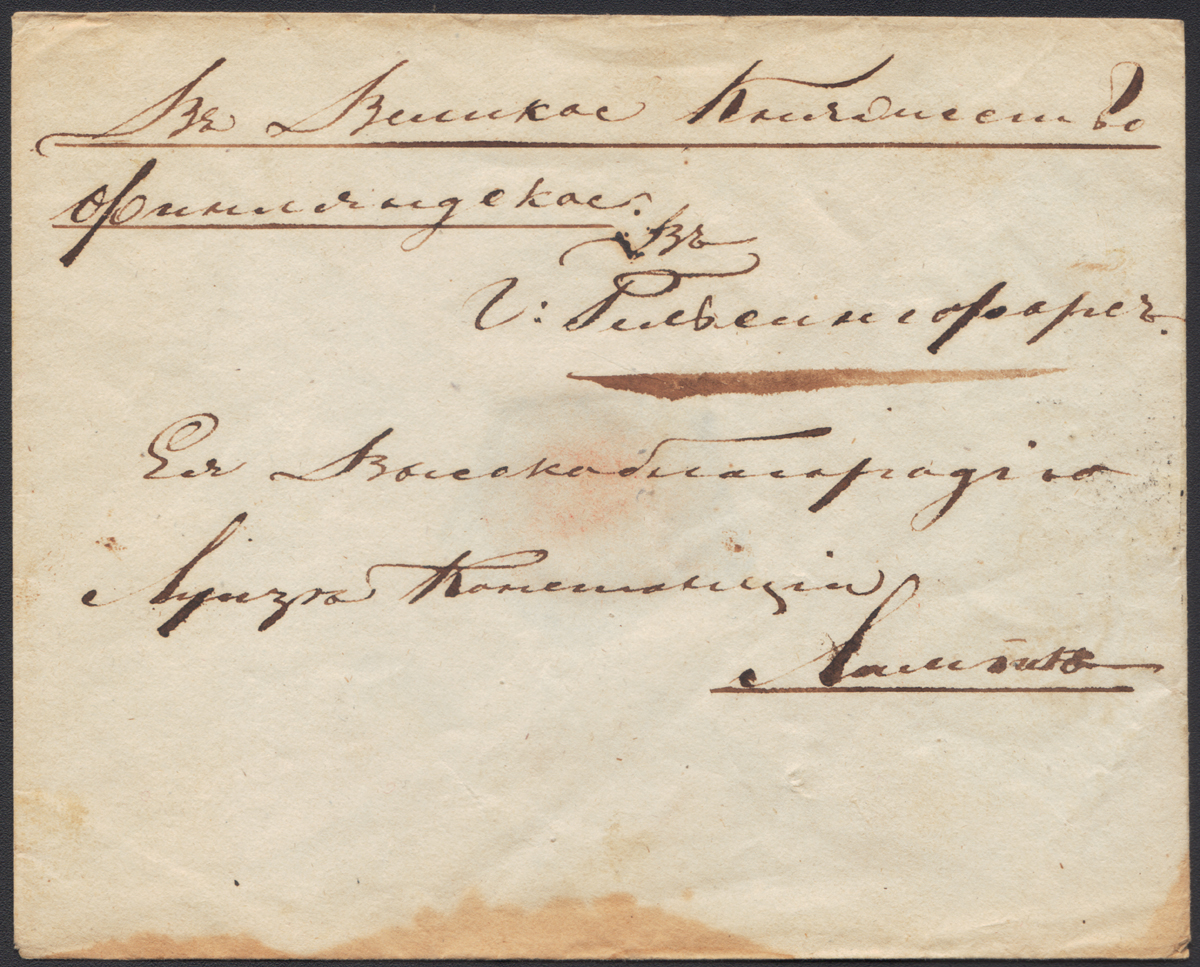 Въ Великое Княжество
Финляндское.
въ
Г: Гельсингфорсъ.
Ея Высокоблагородію
Луизѣ Констанціи